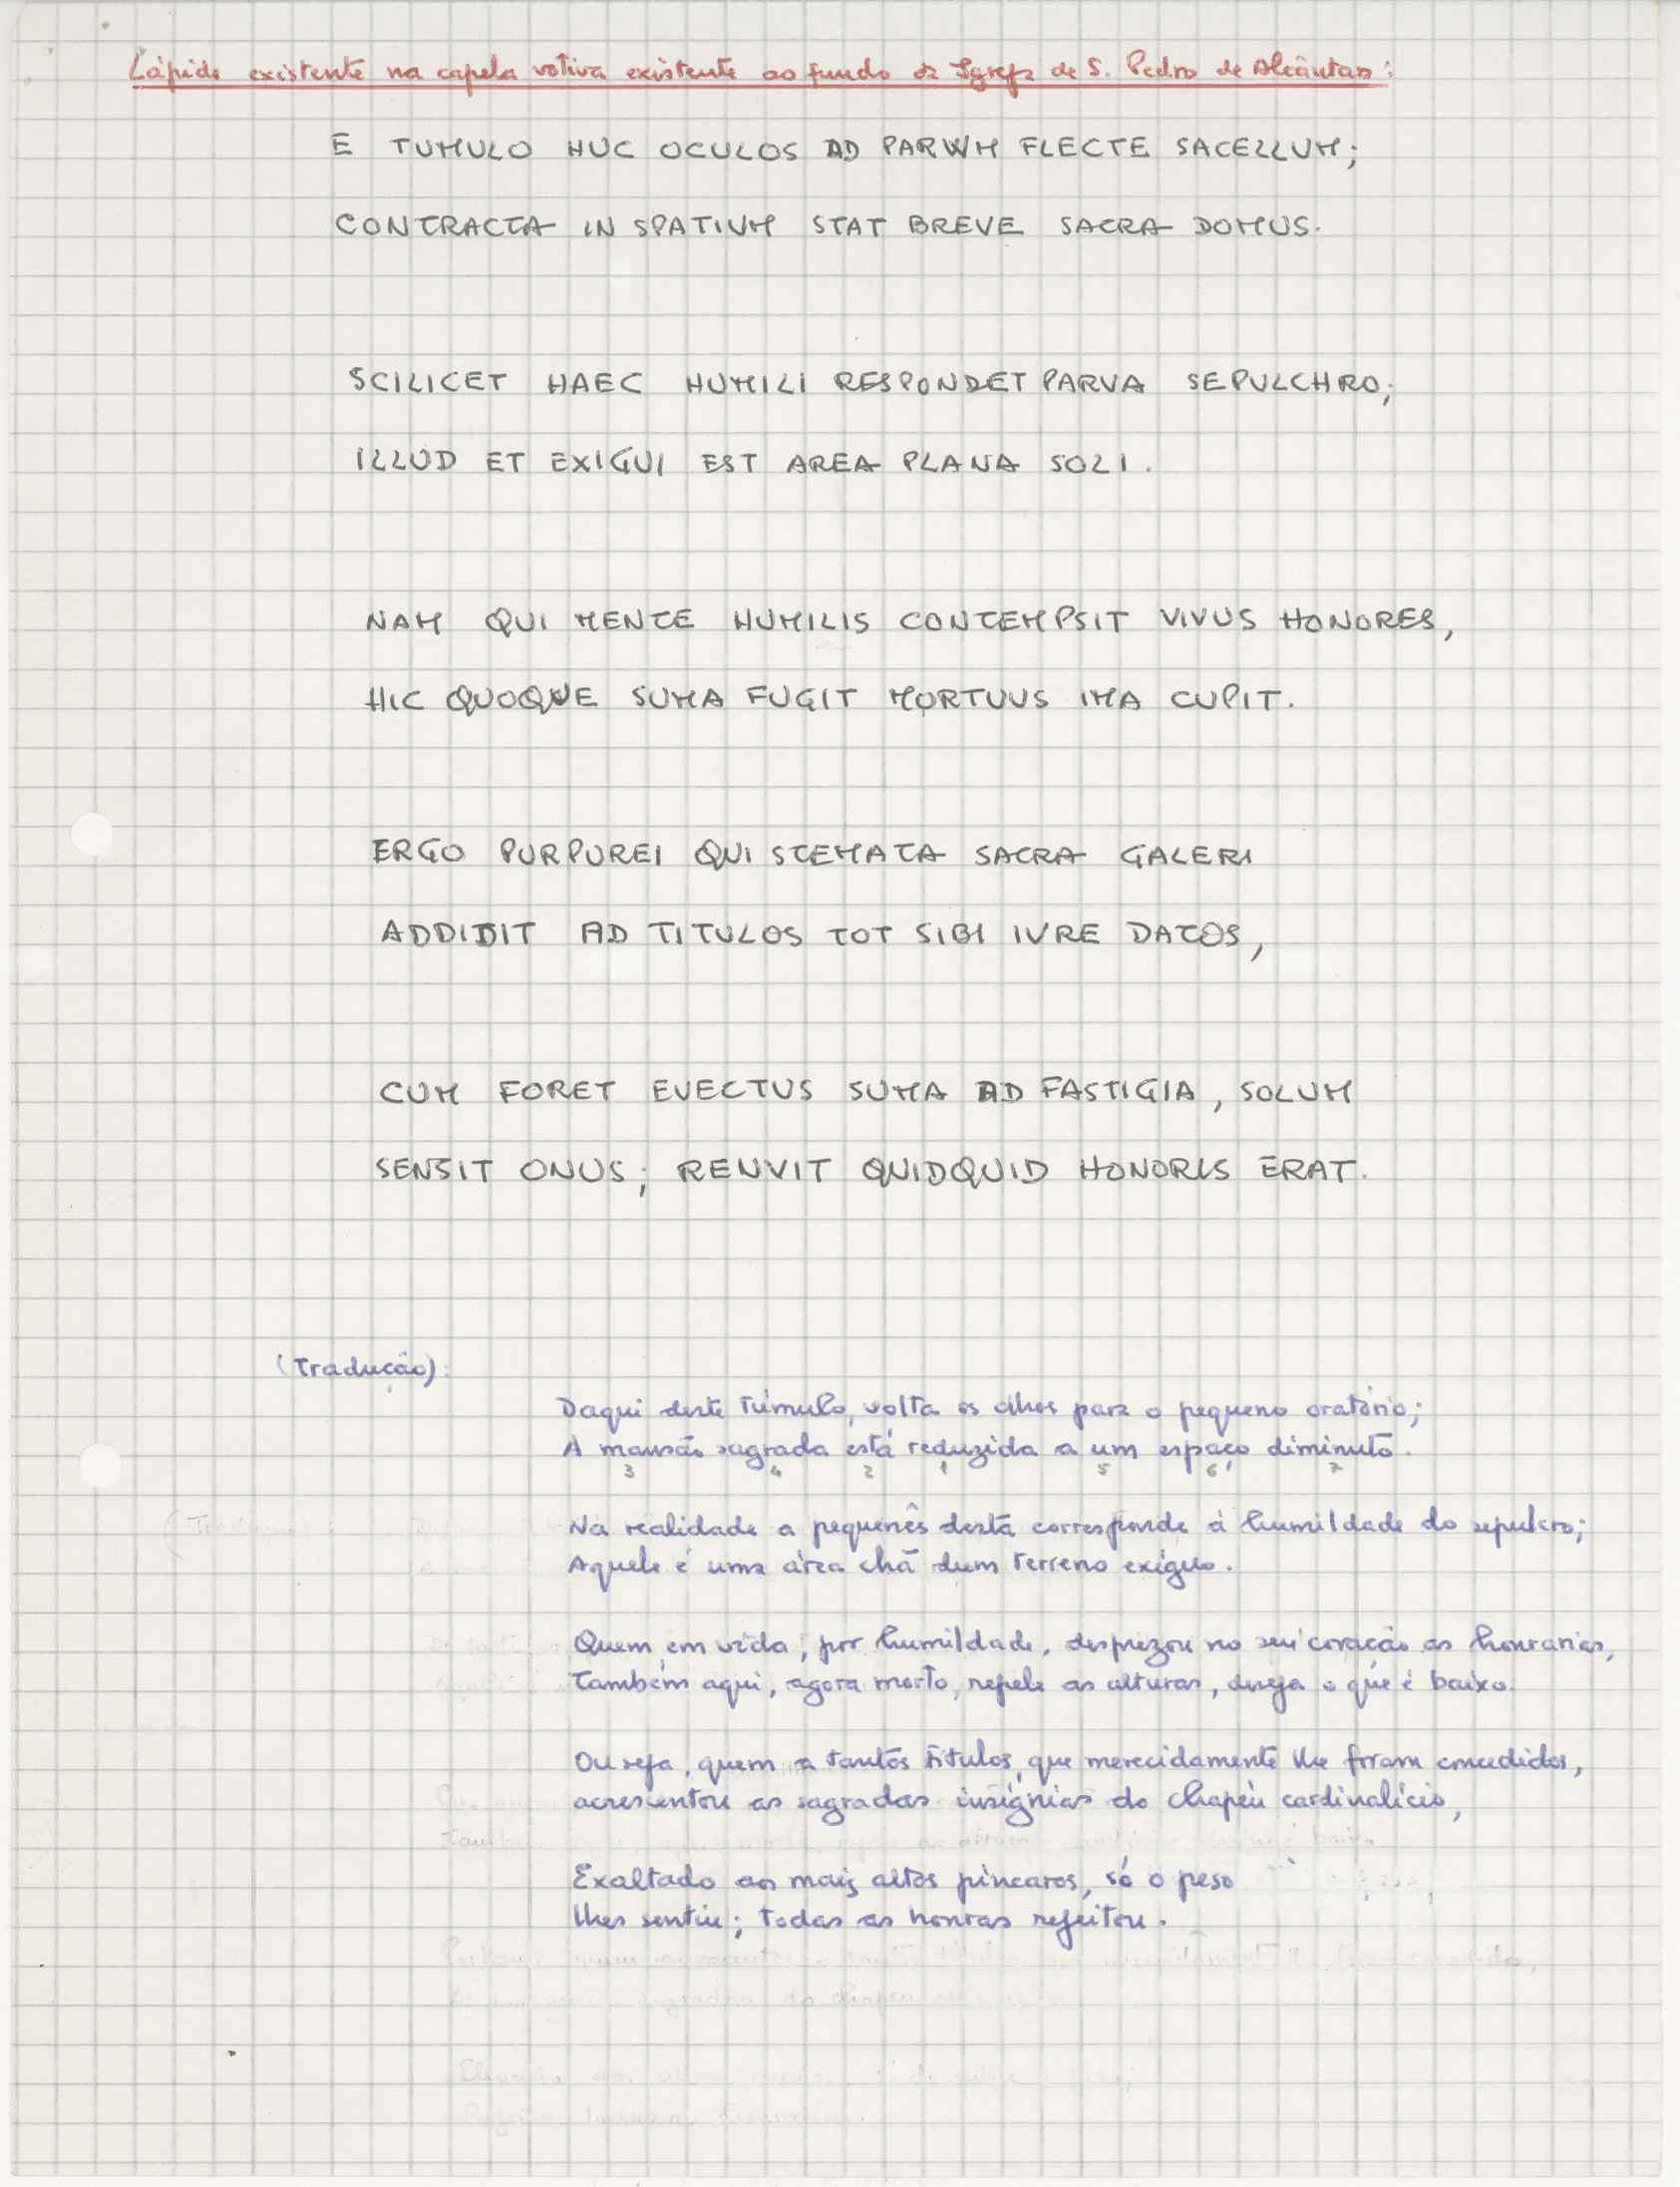 Lápide existente na capela votiva existente ao fundo da Igreja de S. Pedro de Alcântara:
E TUMULO HUC OCULOS AD PARWM FLECTE SACELLUM;
CONTRACTA IN SPATIUM STAT BREVE SACRA DOMUS.
SCILICET HAEC HUMILI RESPONDET PARVA SEPULCHRO;
ILLUD ET EXIGUI EST AREA PLANA SOLI.
NAM QUI MENTE HUMILIS CONTEMPSIT VIVUS HONORES,
HIC QUOQUE SUMA FUGIT MORTUUS IMA CUPIT.
ERGO PURPUREI QUI STEMATA SACRA GALERI
ADDIDIT AD TITULOS TOT SIBI IVRE DATOS,
CUM FORET EVECTUS SUMA AD FASTIGIA, SOLUM
SENSIT ONUS; RENVIT QUIDQUID HONORIS ERAT.
(Tradução):
Daqui deste túmulo, volta os olhos para o pequeno oratório;
A mansão sagrada está reduzida a um espaço diminuto.
3 4 2 1 5 6 7
Na realidade a pequenês desta corresponde à humildade do sepulcro;
Aquele é uma área chã dum terreno exíguo.
Quem, em vida, por humildade, desprezou no seu coração as honrarias,
também aqui, agora morto, repele as alturas, deseja o que é baixo.
Ou seja, quem a tantos títulos, que merecidamente lhe foram concedidos,
acrescentou as sagradas insígnias do chapéu cardinalício,
Exaltado aos mais altos píncaros, só o peso
lhes sentiu; todas as honras rejeitou.